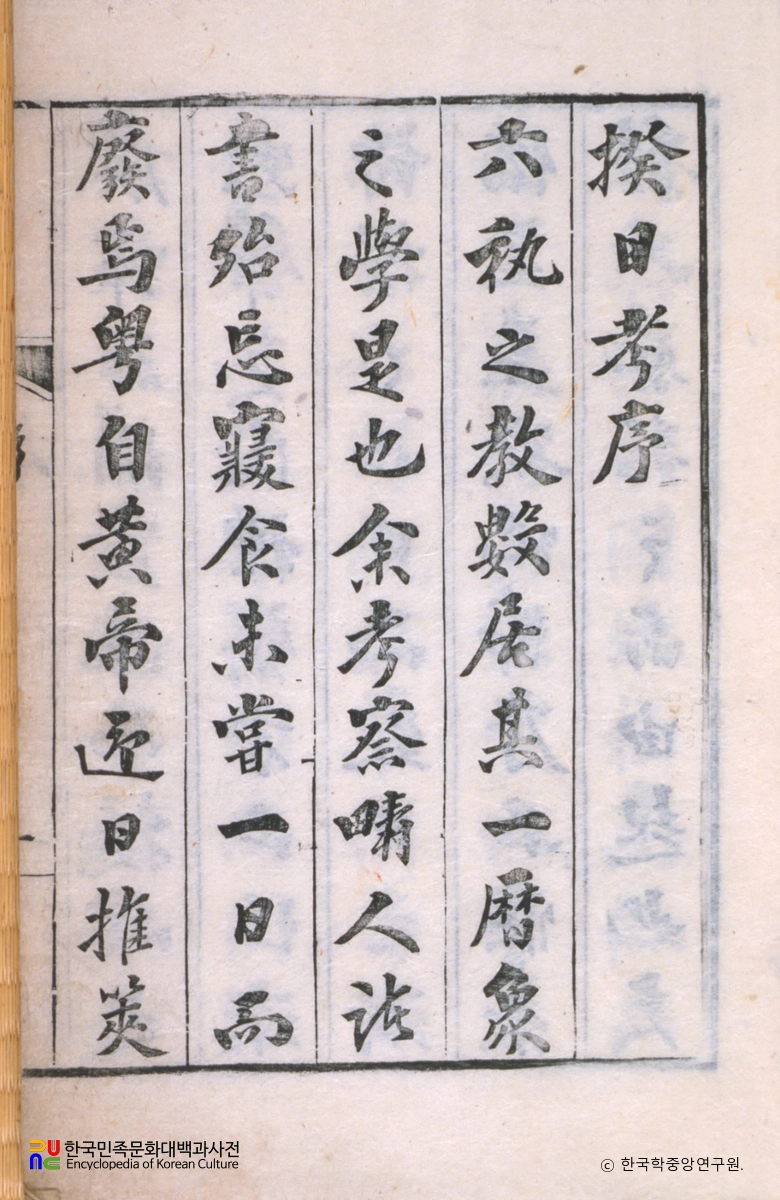 揆日考序
六秇之教數居其一暦象
之學是也余考察疇人諸
書殆忘寢食未嘗一日而
廢焉粤自黃帝迎日推筴
한국민족문화대백과사전
Encyclopedia of Korean Culture
ⓒ 한국학중앙연구원.